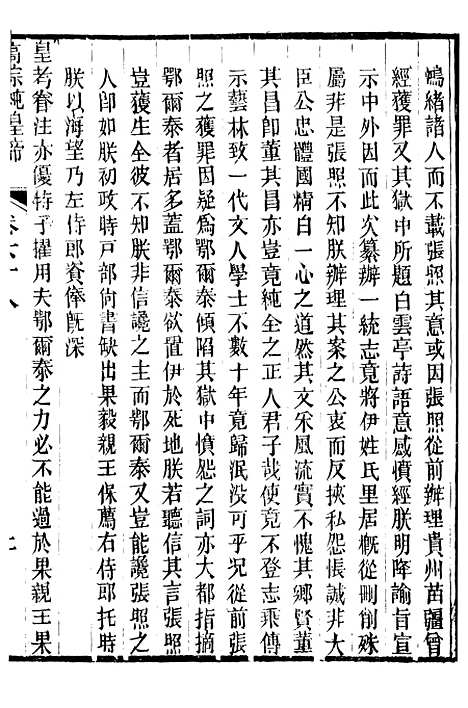 鴻緒諸人而不載張照其意或因張照從前辦理貴州苗疆曾
經獲罪又其獄中所題白雲亭詩語意感憤經朕明降諭旨宣
示中外因而此次纂辦一統志竟將伊姓氏里居概從刪削殊
屬非是張照不知朕辦理其案之公衷而反挾私怨悵誠非大
臣公忠體國精白一心之道然其文采風流實不愧其鄉賢董
其昌卽董其昌亦豈竟純全之正人君子哉使竟不登志乘傳
示藝林致一代文人學士不數十年竟歸泯沒可乎況從前張
照之獲罪因疑爲鄂爾泰傾陷其獄中憤怨之詞亦大都指摘
鄂爾泰者居多蓋鄂爾泰欲置伊於死地朕若聽信其言張照
豈獲生全彼不知朕非信讒之主而鄂爾泰又豈能讒張照之
人卽如朕初政時戸部尙書缺出果毅親王保薦右侍郎托時
朕以海望乃左侍郎資俸旣深
皇考眷注亦優特予擢用夫鄂爾泰之力必不能過於果親王果
高宗純皇帝 卷六十八 七